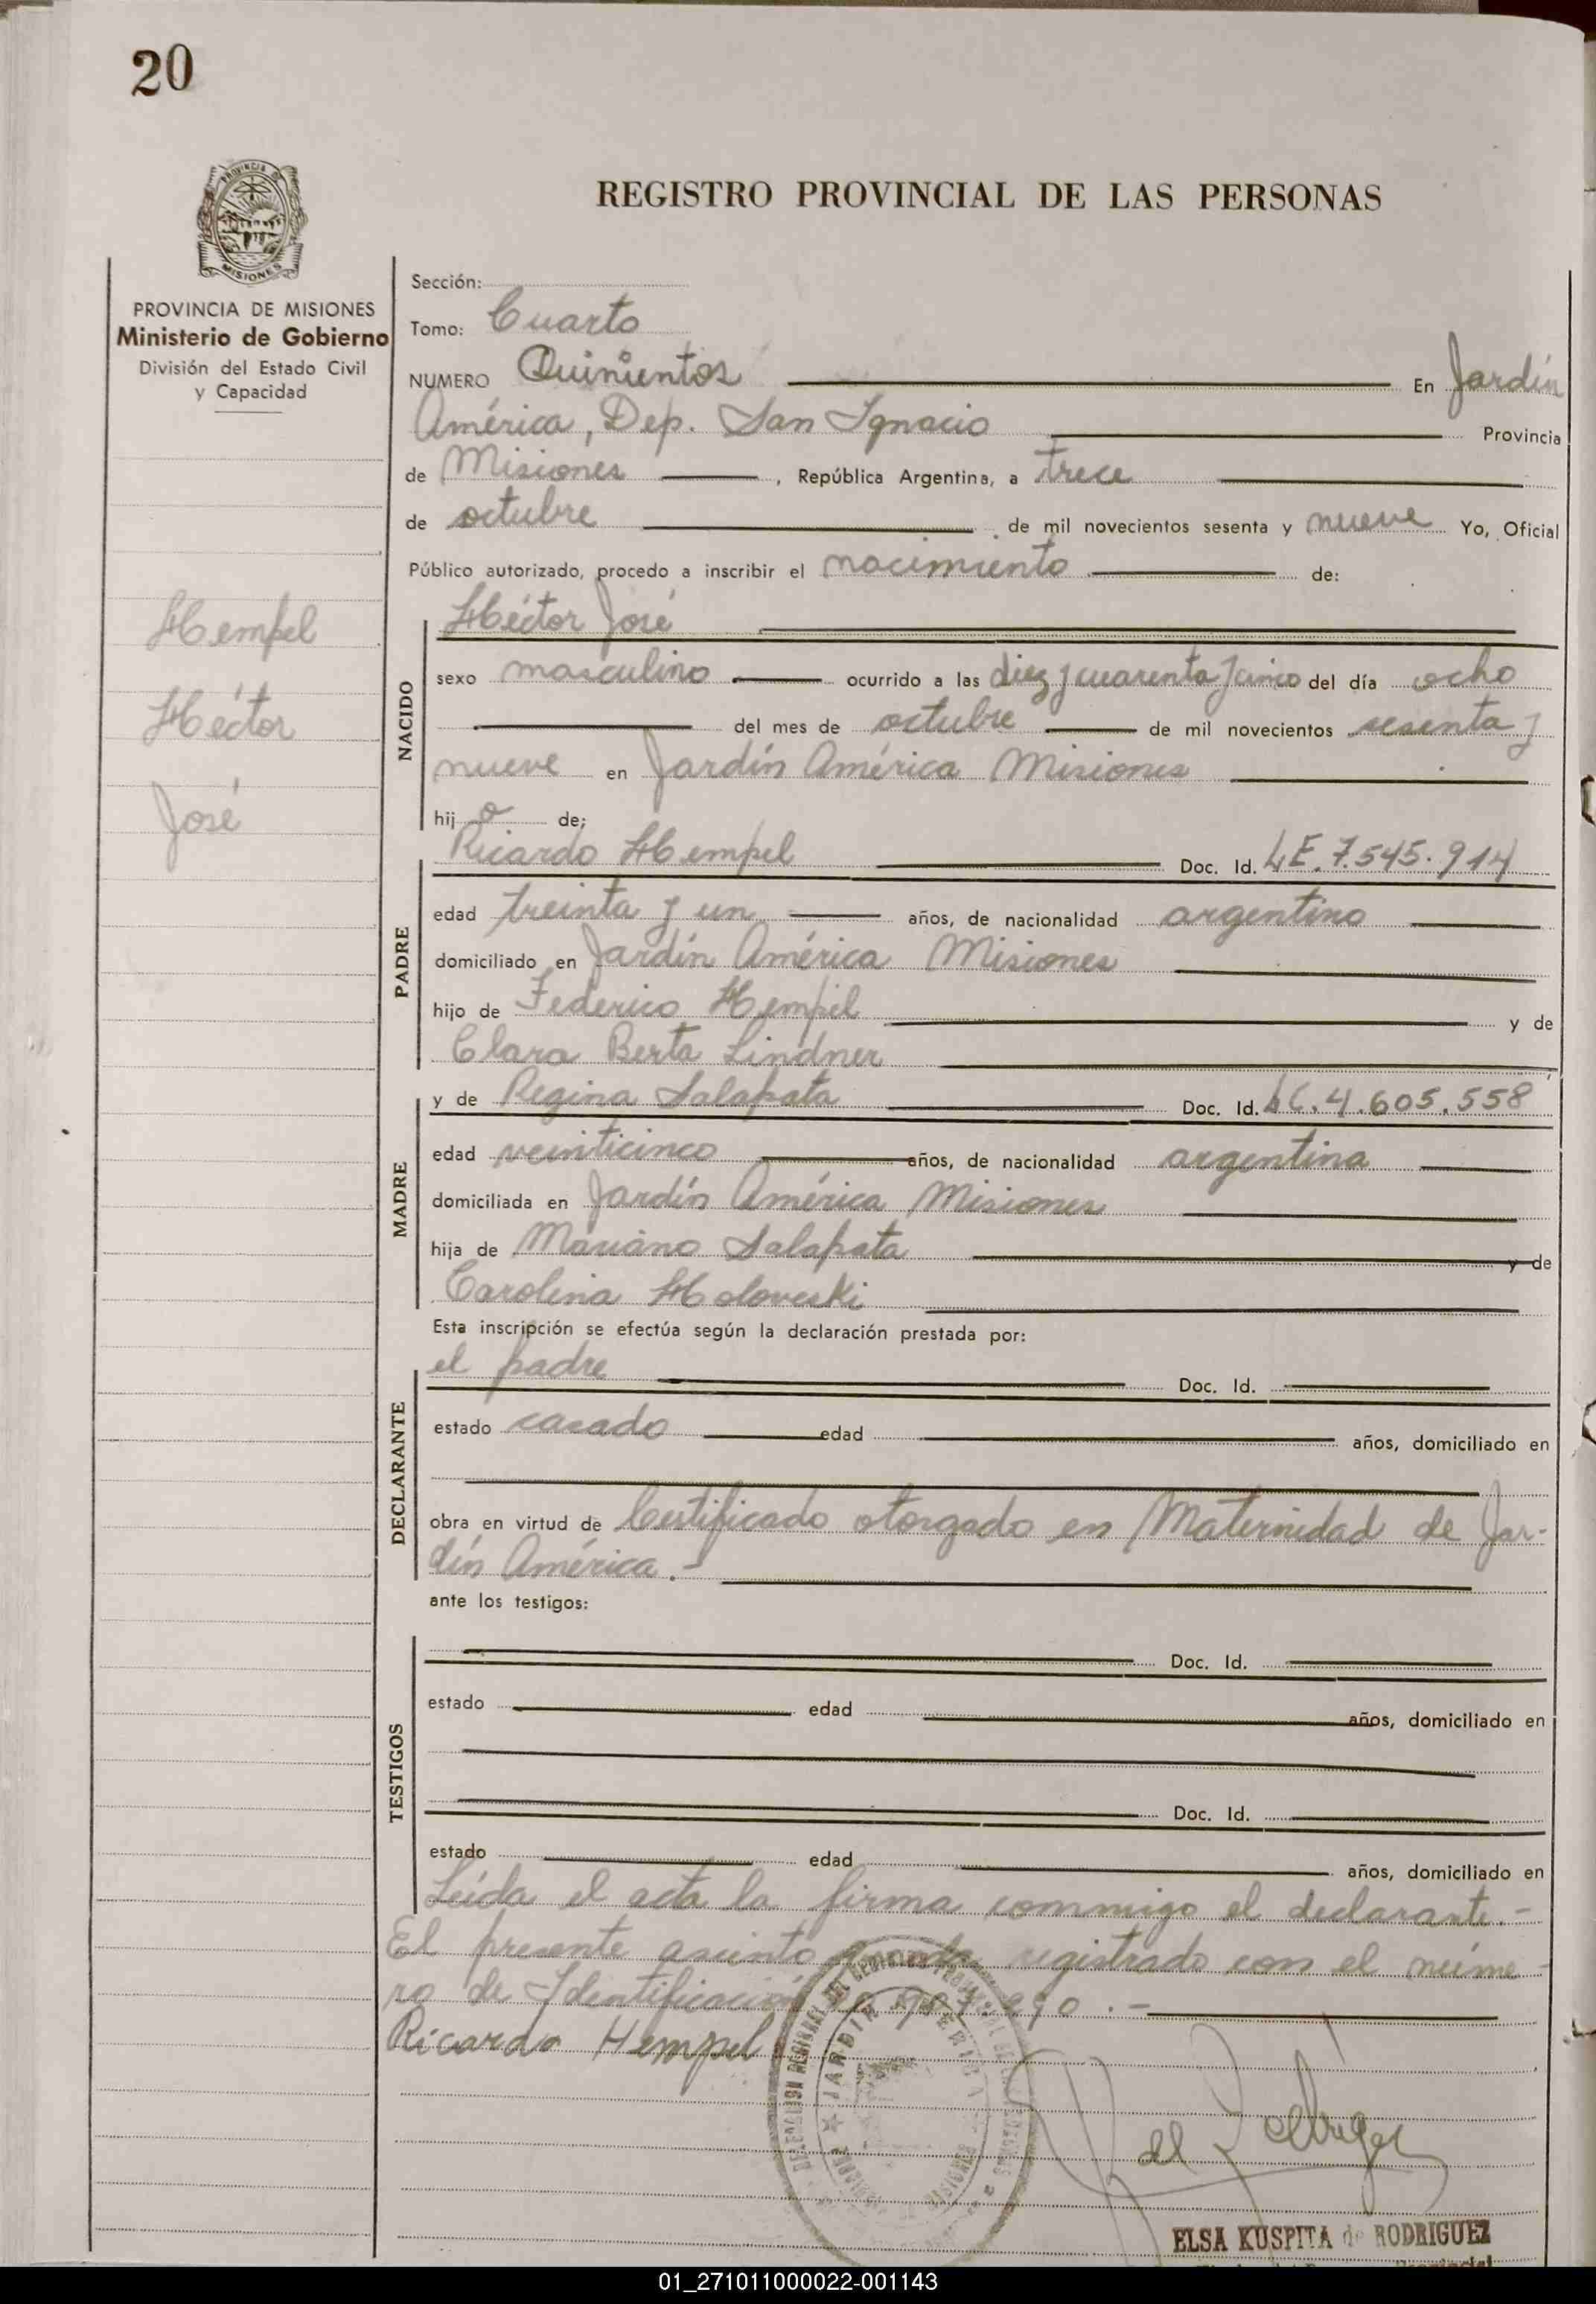 20
PROVINCIA DE MISIONES
REGISTRO PROVINCIAL DE LAS PERSONAS
PROVINCIA DE MISIONES
Ministerio de Gobierno
División del Estado Civil
y Capacidad
Hempel
Héctor
José
Sección:
Tomo: Cuarto
NUMERO Quinientos En Jardín
América, Dep. San Ignacio Provincia
de Misiones, República Argentina, a trece
de octubre de mil novecientos sesenta y nueve Yo, Oficial
Público autorizado, procedo a inscribir el nacimiento de:
NACIDO
Héctor José
sexo masculino ocurrido a las diez y cuarenta y cinco del día ocho
del mes de octubre de mil novecientos sesenta y
nueve en Jardín América Misiones
hijo de;
PADRE
Ricardo Hempel Doc. Id. LE. 7.545.914
edad treinta y un años, de nacionalidad argentino
domiciliado en Jardín América Misiones
hijo de Federico Hempel y de
Clara Berta Lindner
MADRE
y de Regina Salapata Doc. Id. LC. 4.605.558
edad veinticinco años, de nacionalidad argentina
domiciliada en Jardín América Misiones
hija de Mariano Salapata y de
Carolina Holoveski
Esta inscripción se efectúa según la declaración prestada por:
DECLARANTE
el padre Doc. Id.
estado casado edad años, domiciliado en
obra en virtud de Certificado otorgado en Maternidad de Jar-
dín América.-
ante los testigos:
TESTIGOS
Doc. Id.
estado edad años, domiciliado en
Doc. Id.
estado edad años, domiciliado en
Leída el acta la firma conmigo el declarante.-
El presente asiento queda registrado con el núme-
ro de Identificación
Ricardo Hempel
JARDIN AMERICA
ELSA KUSPITA de RODRIGUEZ
01_271011000022-001143